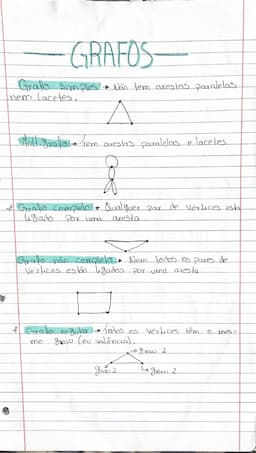 GRAFOS
Grafo simples → Não tem arestas paralelas
nem lacetes.
Multigrafo → Tem arestas paralelas e lacetes
* Grafo completo → Qualquer par de vértices está
ligado por uma aresta
Grafo não completo → Nem todos os pares de
vértices estão ligados por uma aresta
* Grafo regular → Todos os vértices têm o mes-
mo grau (ou valência).
→ grau 2
grau 2
→ grau 2